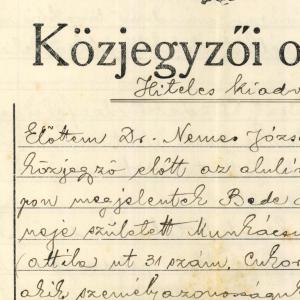 Közjegyzői o
Hiteles kiadv
Előttem Dr. Nemes Józse
közjegyző előtt az alulir
pon megjelentek Bede
neje született Munkácsi
Attila ut 31 szám, cukor
akik személyazonosságuk